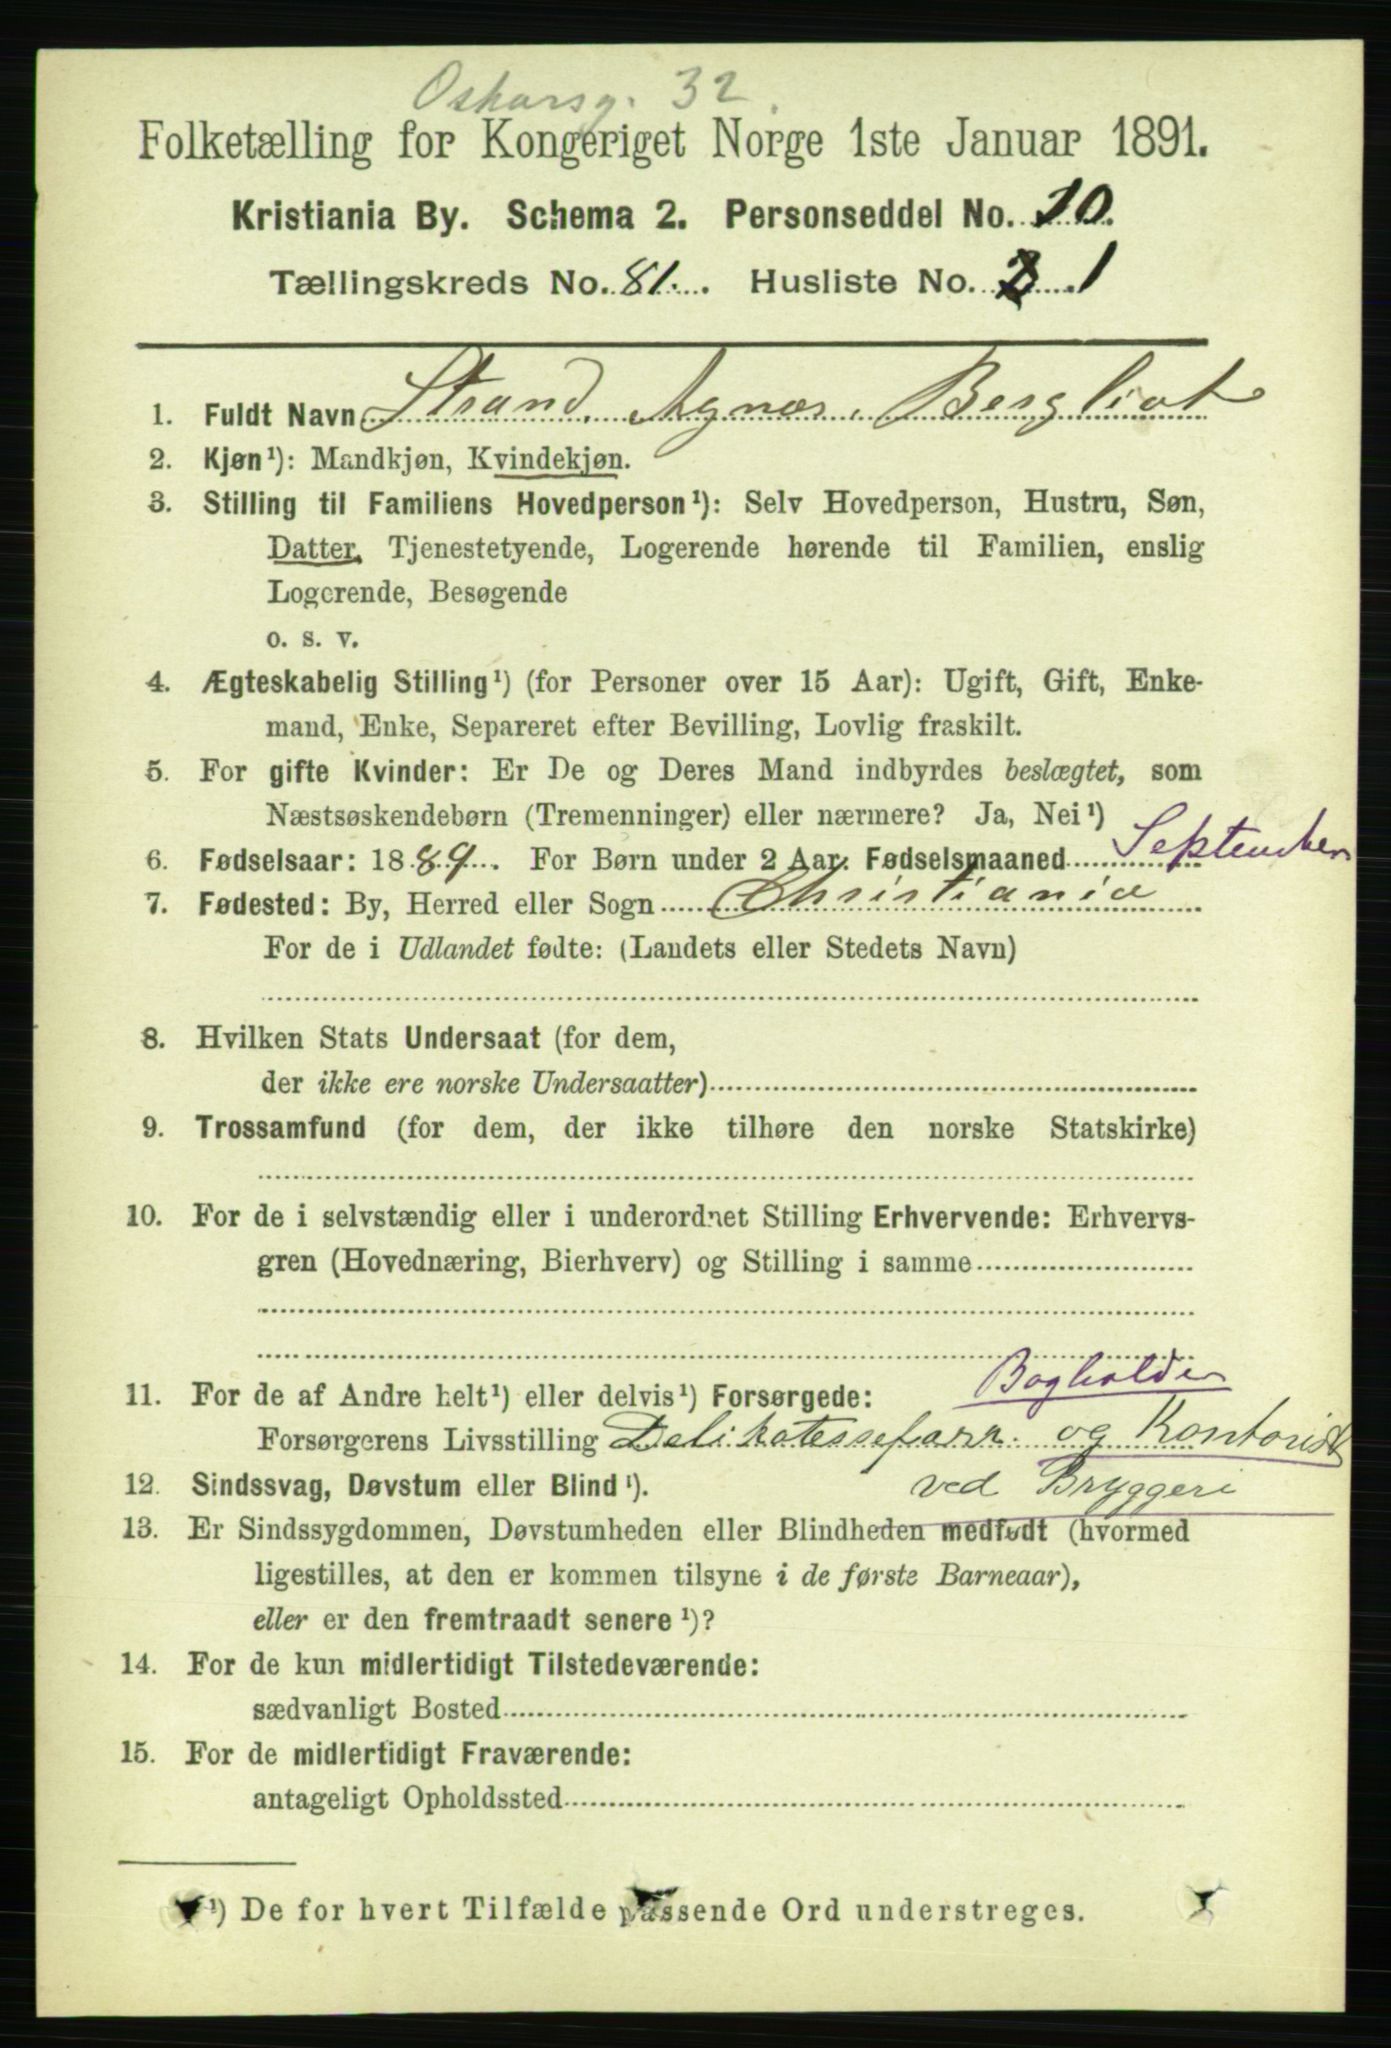 Oskarsg. 32.
Folketælling for Kongeriget Norge 1ste Januar 1891.
Kristiania By. Schema 2. Personseddel No. 10.
Tællingskreds No. 81. Husliste No. 1
1. Fuldt Navn Strand, Agnes, Bergliot
2. Kjøn¹): Mandkjøn, Kvindekjøn.
3. Stilling til Familiens Hovedperson¹): Selv Hovedperson, Hustru, Søn,
Datter, Tjenestetyende, Logerende hørende til Familien, enslig
Logerende, Besøgende
o. s. v.
4. Ægteskabelig Stilling¹) (for Personer over 15 Aar): Ugift, Gift, Enke-
mand, Enke, Separeret efter Bevilling, Lovlig fraskilt.
5. For gifte Kvinder: Er De og Deres Mand indbyrdes beslægtet, som
Næstsøskendebørn (Tremenninger) eller nærmere? Ja, Nei¹)
6. Fødselsaar: 1889. For Børn under 2 Aar: Fødselsmaaned September
7. Fødested: By, Herred eller Sogn Christiania
For de i Udlandet fødte: (Landets eller Stedets Navn)
8. Hvilken Stats Undersaat (for dem,
der ikke ere norske Undersaatter)
9. Trossamfund (for dem, der ikke tilhøre den norske Statskirke)
10. For de i selvstændig eller i underordnet Stilling Erhvervende: Erhvervs-
gren (Hovednæring, Bierhverv) og Stilling i samme
Bogholder
11. For de af Andre helt¹) eller delvis¹) Forsørgede:
Forsørgerens Livsstilling Delikatesseforr. og Kontorist
ved Bryggeri
12. Sindssvag, Døvstum eller Blind¹).
13. Er Sindssygdommen, Døvstumheden eller Blindheden medfødt (hvormed
ligestilles, at den er kommen tilsyne i de første Barneaar),
eller er den fremtraadt senere¹)?
14. For de kun midlertidigt Tilstedeværende:
sædvanligt Bosted
15. For de midlertidigt Fraværende:
antageligt Opholdssted
¹) De for hvert Tilfælde passende Ord understreges.